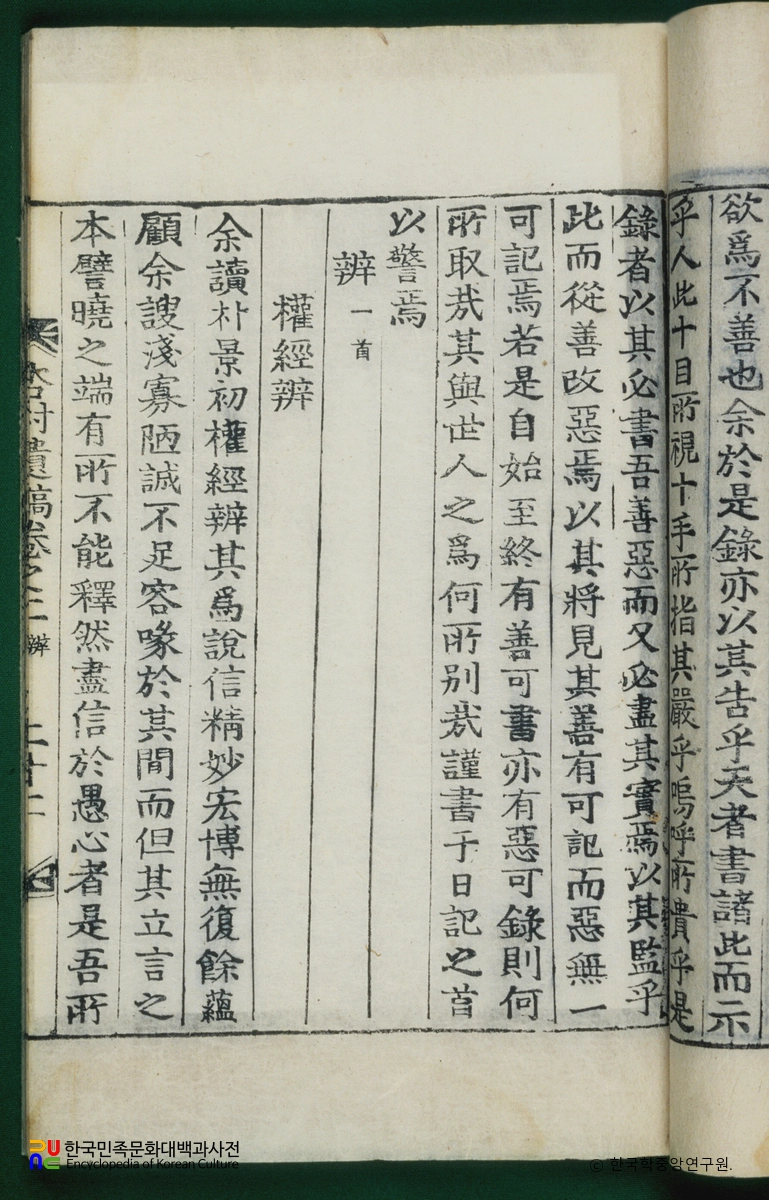 欲爲不善也余於是錄亦以其告乎天者書諸此而示
乎人此十目所視十手所指其嚴乎嗚呼所貴乎是
錄者以其必書吾善惡而又必盡其實焉以其監乎
此而從善改惡焉以其將見其善有可記而惡無一
可記焉若是自始至終有善可書亦有惡可錄則何
所取哉其與世人之爲何所別哉謹書于日記之首
以警焉
辨 一首
權經辨
余讀朴景初權經辨其爲說信精妙宏博無復餘蘊
顧余謏淺寡陋誠不足容喙於其間而但其立言之
本譬曉之端有所不能釋然盡信於愚心者是吾所
村遺稿卷之二 辨 二十二
한국민족문화대백과사전
Encyclopedia of Korean Culture
© 한국학중앙연구원.